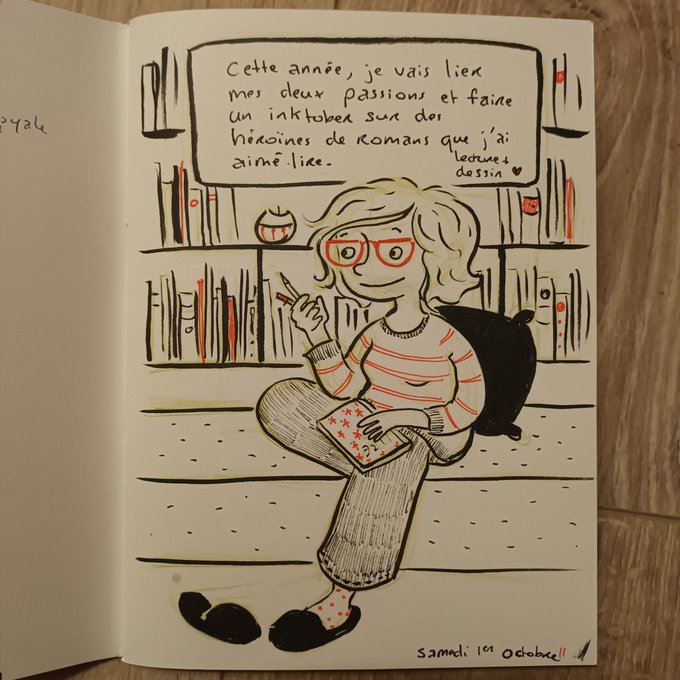 oyale
Cette année, je vais lier
mes deux passions et faire
un inktober sur des
héroïnes de romans que j'ai
aimé lire.
lecture +
dessin ♥
Samedi 1er Octobre!!